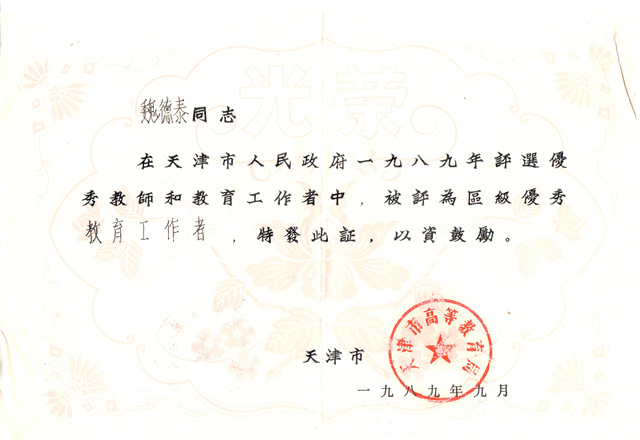 光荣
魏德泰同志
在天津市人民政府一九八九年評選優
秀教師和教育工作者中，被評為區級優秀
教育工作者，特發此証，以資鼓勵。
天津市高等教育局
天津市
一九八九年九月